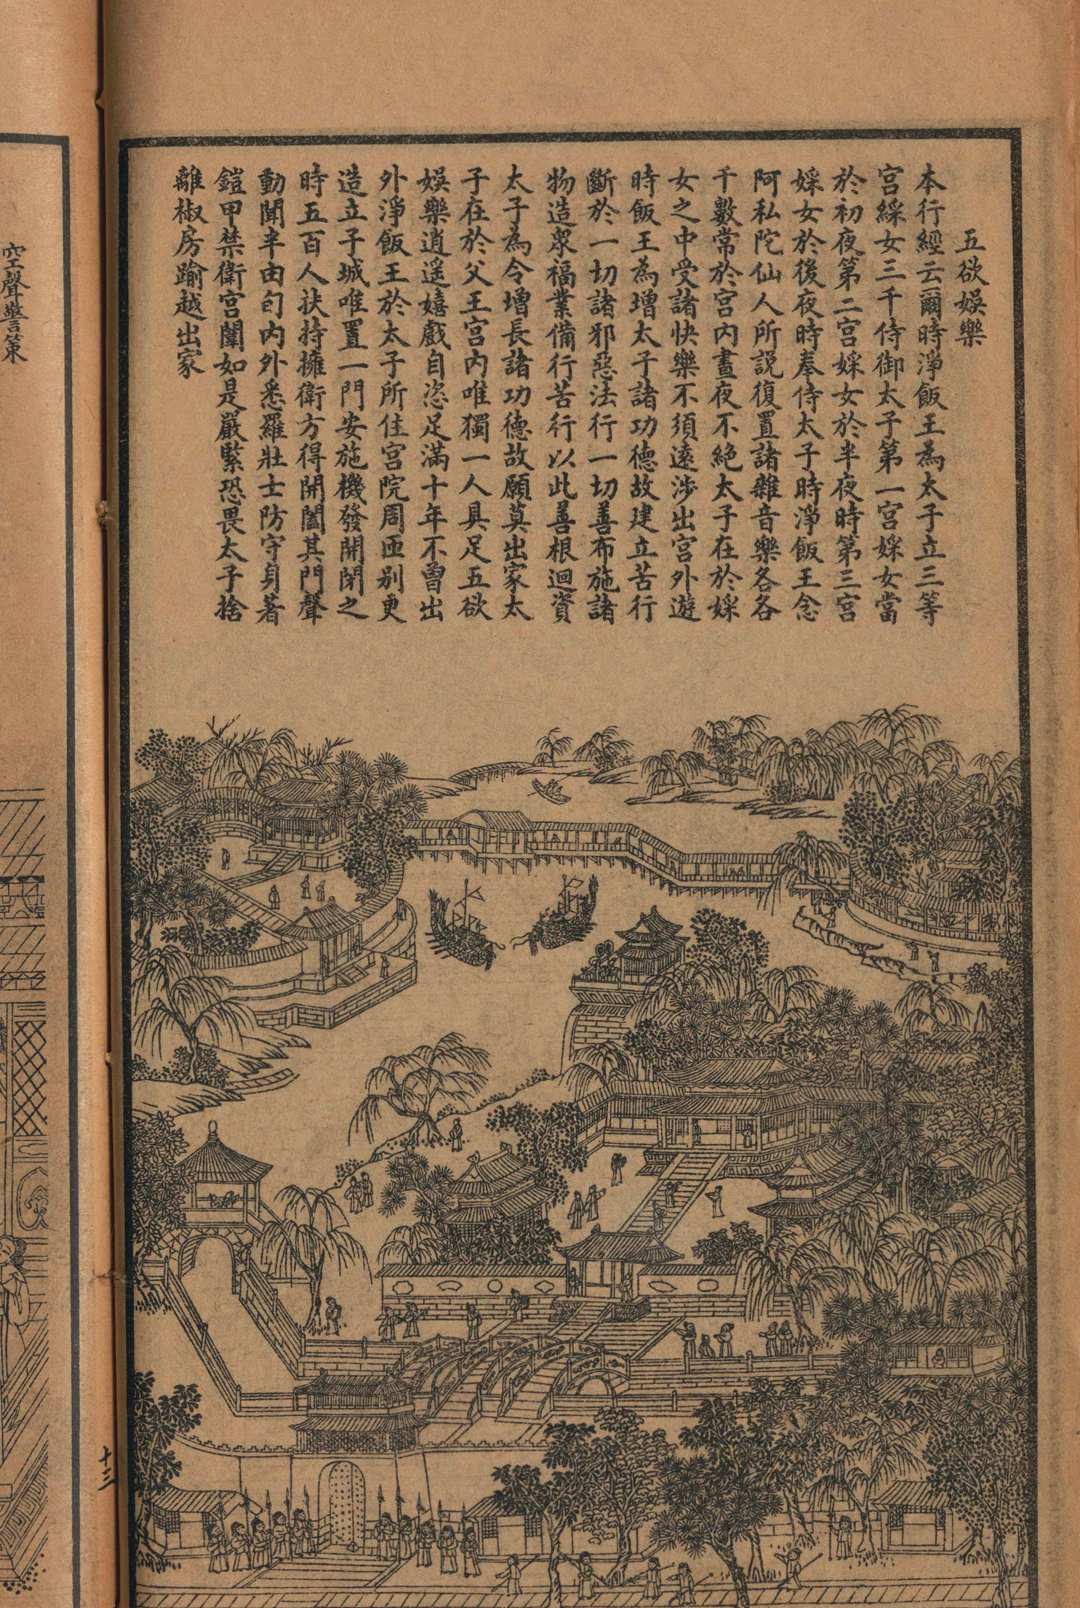 五欲娛樂
本行經云爾時淨飯王為太子立三等
宮綵女三千侍御太子第一宮婇女當
於初夜第二宮婇女於半夜時第三宮
婇女於後夜時奉侍太子時淨飯王念
阿私陀仙人所說復置諸雜音樂各各
千數常於宮內晝夜不絕太子在於婇
女之中受諸快樂不須遠涉出宮外遊
時飯王為增太子諸功德故建立苦行
斷於一切諸邪惡法行一切善布施諸
物造眾福業備行苦行以此善根迴資
太子為令增長諸功德故願莫出家太
子在於父王宮內唯獨一人具足五欲
娛樂逍遙嬉戲自恣足滿十年不曾出
外淨飯王於太子所住宮院周匝別更
造立子城唯置一門安施機發開閉之
時五百人扶持擁衛方得開闔其門聲
動聞半由旬內外悉羅壯士防守身著
鎧甲禁衛宮闈如是嚴緊恐畏太子捨
離椒房踰越出家
空聲警策
十三